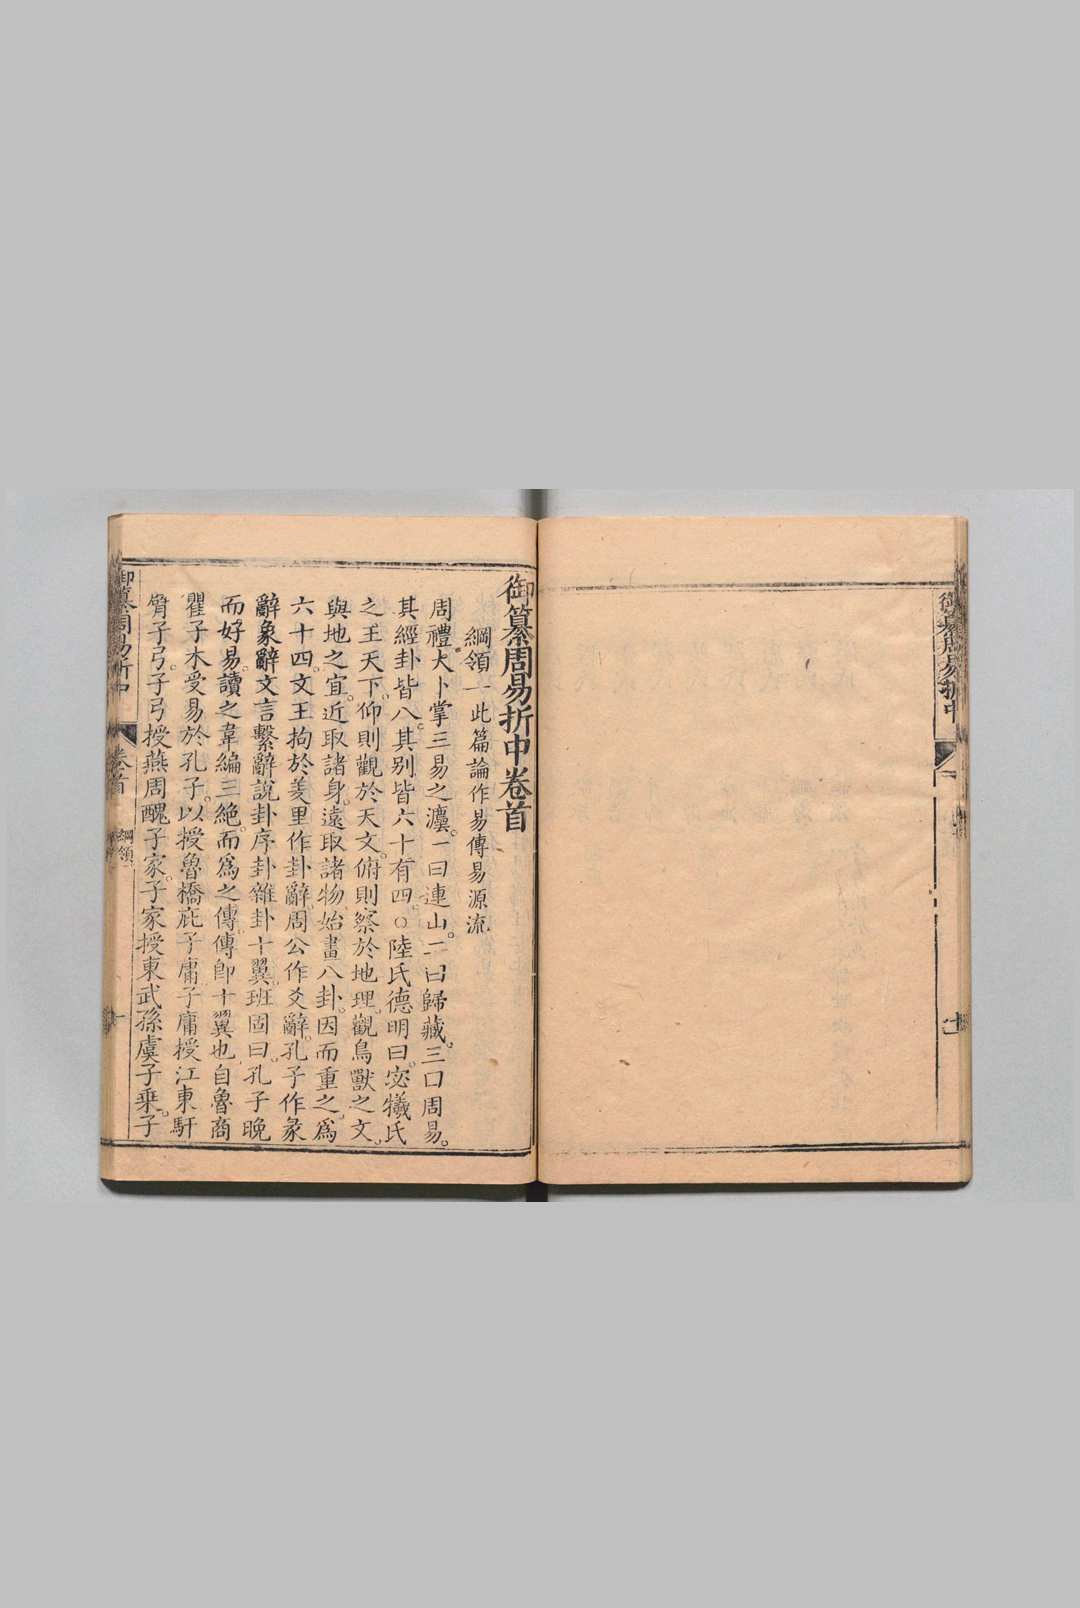 御纂周易折中
十二
御纂周易折中卷首
綱領一此篇論作易傳易源流
周禮大卜掌三易之灋。一曰連山。二曰歸藏。三曰周易。
其經卦皆八。其别皆六十有四。○陸氏德明曰。宓犧氏
之王天下。仰則觀於天文。俯則察於地理。觀鳥獸之文。
與地之宜。近取諸身。遠取諸物。始畫八卦。因而重之。爲
六十四。文王拘於羑里作卦辭。周公作爻辭。孔子作彖
辭象辭文言繫辭說卦序卦雜卦十翼。班固曰。孔子晚
而好易。讀之韋編三絶。而爲之傳。傳即十翼也。自魯商
瞿子木受易於孔子。以授魯橋庇子庸。子庸授江東馯
臂子弓。子弓授燕周醜子家。子家授東武孫虞子乗。子
御纂周易折中
卷首
綱領一
一